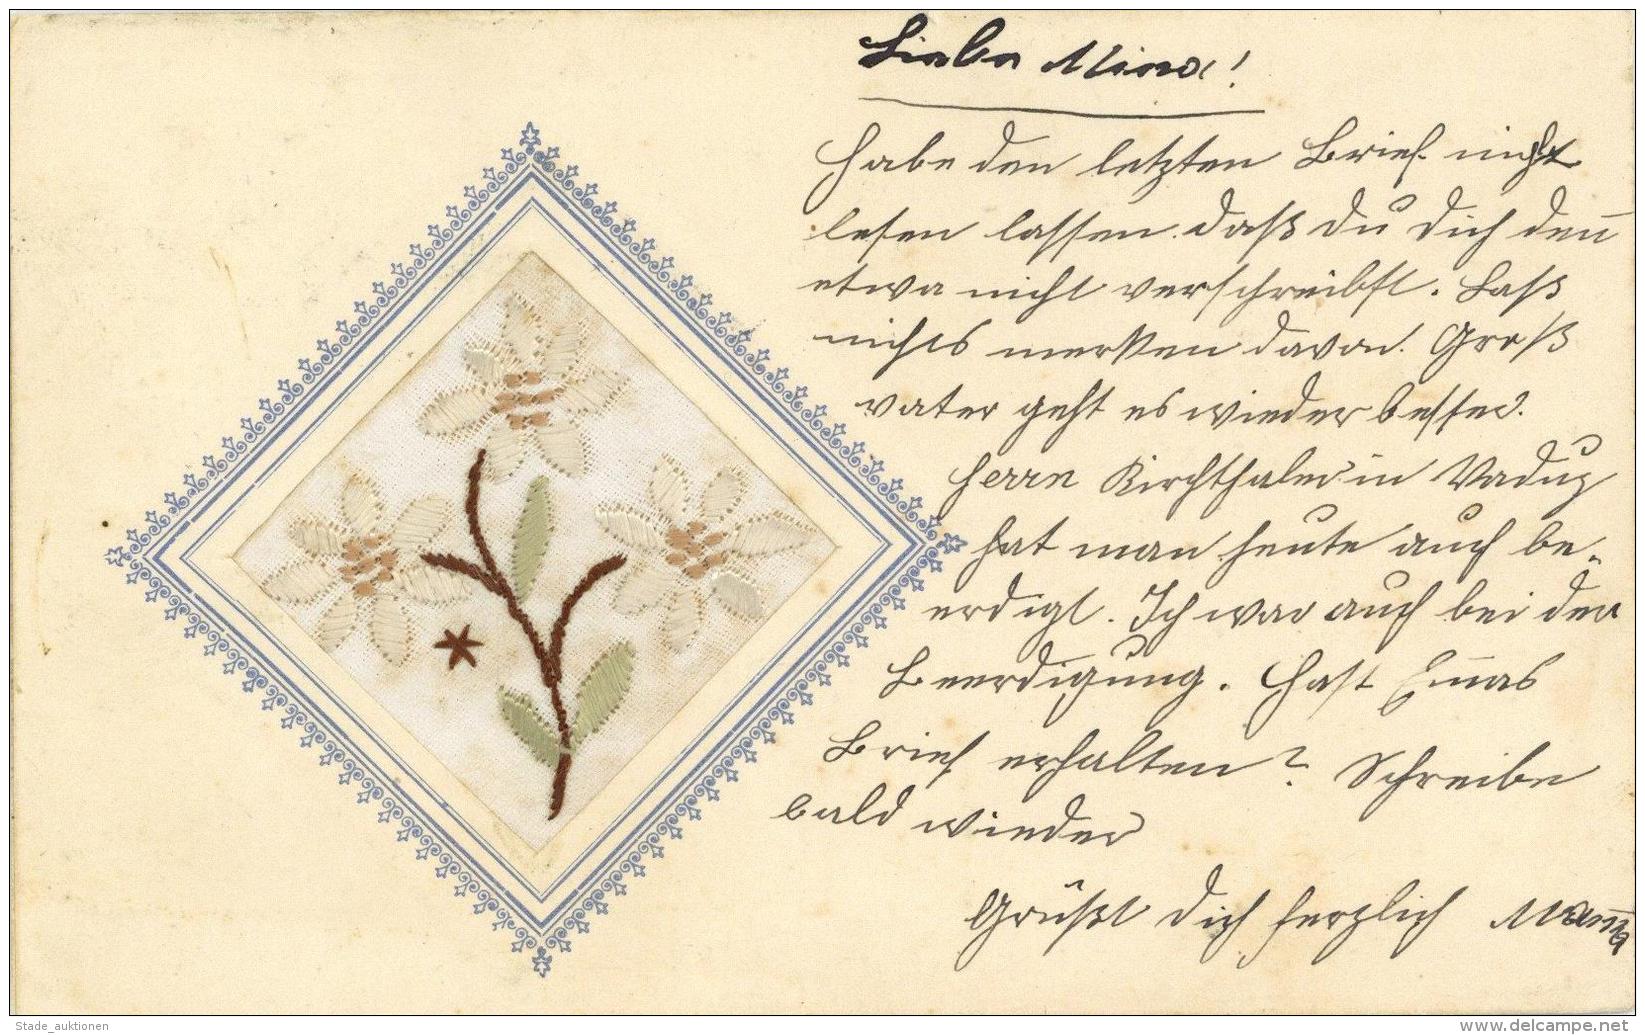 Liebe Mina!
Habe den letzten Brief nicht
lesen lassen. daß du dich deñ
etwa nicht verschreibst. Laß
nichts merken davon. Groß
vater geht es wieder besser.
Herrn Kirchthaler in Vaduz
hat man heute auch be-
erdigt. Ich war auch bei der
Beerdigung. Hast Em̄as
Brief erhalten? Schreibe
bald wieder
Grüßt dich herzlich Mam̄a
Stade_auktionen
www.delcampe.net